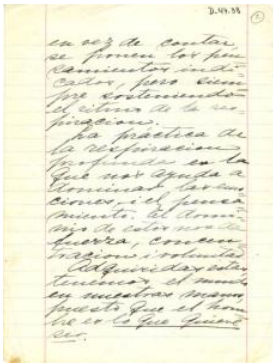 D.44.38
2
en vez de contar,
se ponen los pen
samientos indi
cados, pero siem
pre sosteniendo
el ritmo de la res
piracion.
La práctica de
la respiracion
profunda es la
que nos ayuda a
dominar, las emo
ciones, i el pensa
miento. el domi
nio de estos nos da
fuerza, concen
tracion i voluntad
Adquiridas estas
tenemos el mundo
en nuestras manos,
puesto que el hom
bre es lo que quiere
ser.